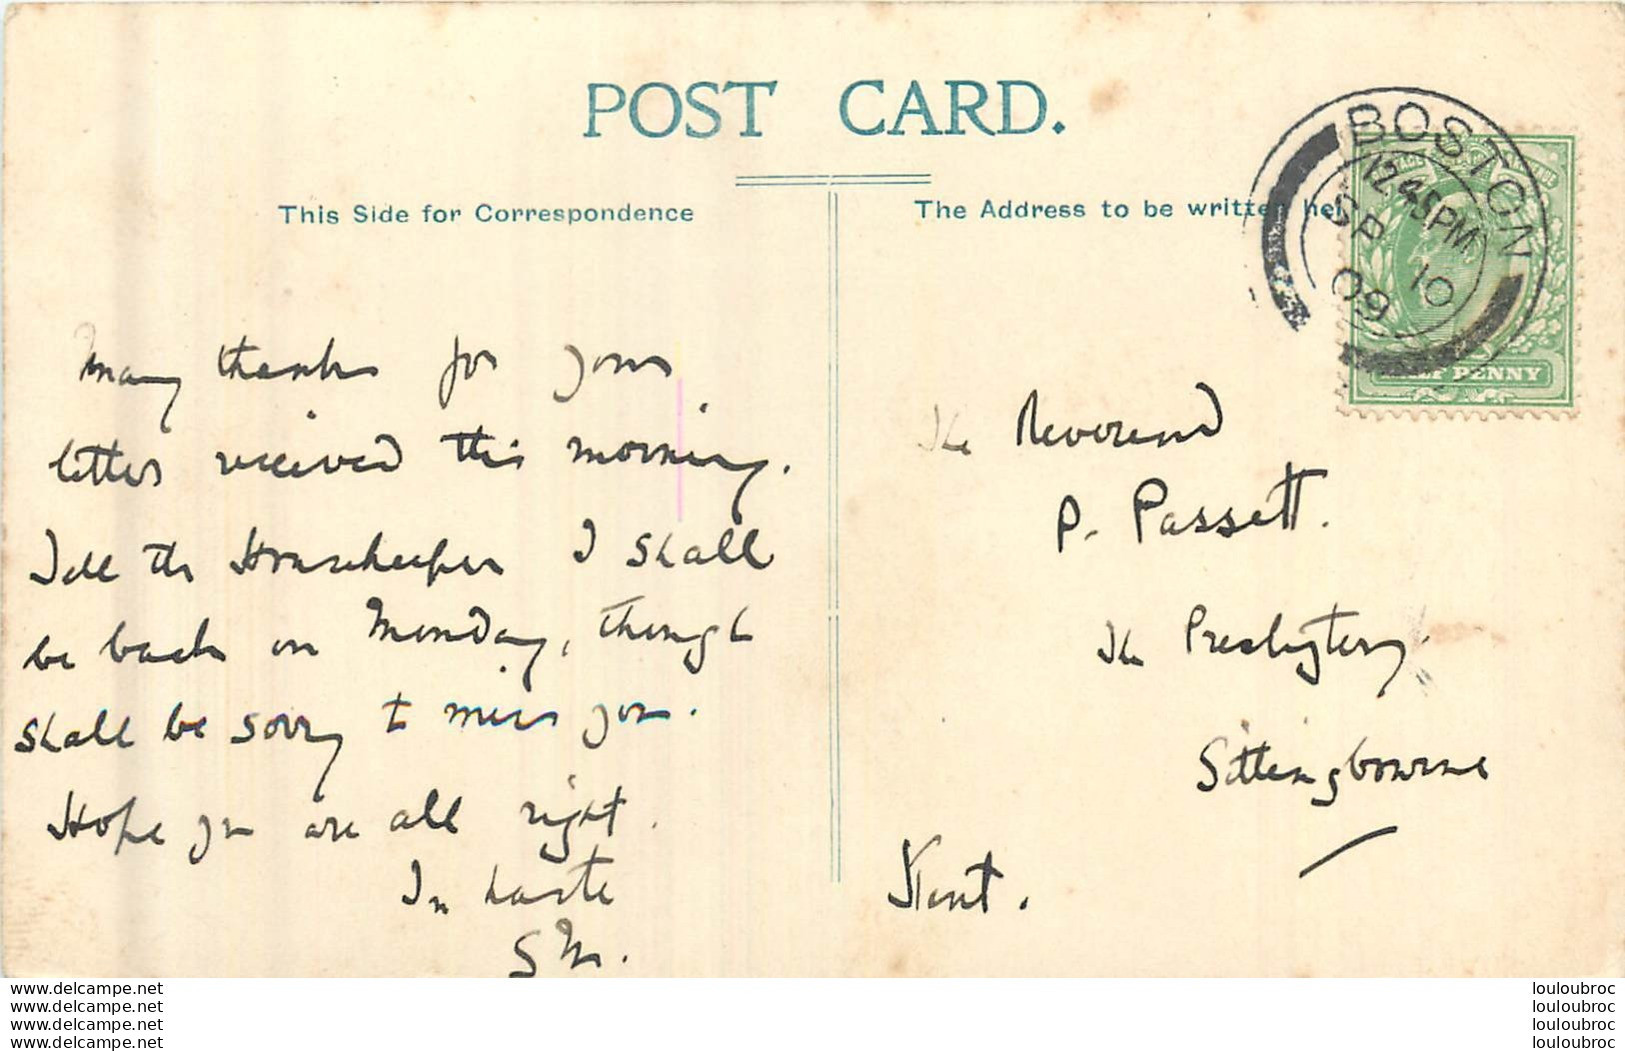 POST CARD.
This Side for Correspondence
The Address to be written he
BOSTON
12 45PM
SP 10
09
HALF PENNY
Many thanks for your
letter received this morning.
Tell the Housekeeper I shall
be back on Monday, though
shall be sorry to miss you.
Hope you are all right.
In haste
SM.
The Reverend
P. Passett.
The Presbytery
Sittingbourne
Kent.
www.delcampe.net
www.delcampe.net
www.delcampe.net
www.delcampe.net
louloubroc
louloubroc
louloubroc
louloubroc